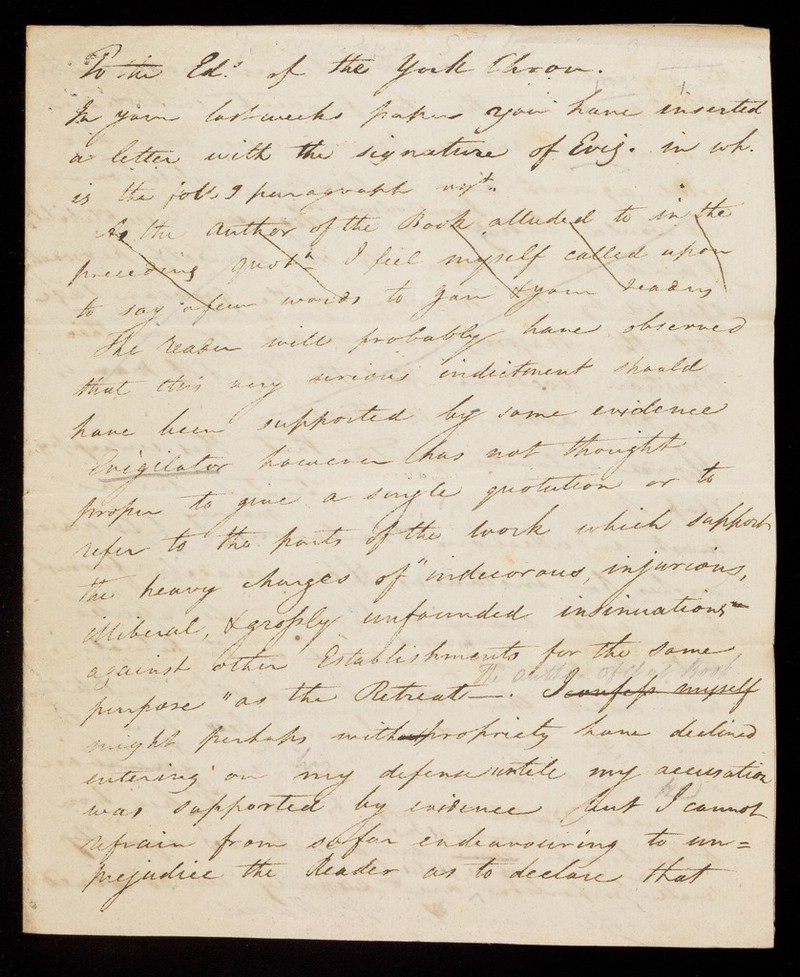 To the Edr. of the York Chron.
In your last weeks paper you have inserted
a letter with the signature of Evig. in wh.
is the follg paragraph vizt.
As the author of the Book alluded to in the
preceding quotn I feel myself called upon
to say a few words to you & your readers
The reader will probably have observed
that this very serious indictment should
have been supported by some evidence
Evigilator however has not thought
proper to give a single quotation or to
refer to the parts of the work which support
the heavy charges of "indecorous, injurious,
illiberal, & grossly unfounded insinuations
against other Establishments for the same
The author of the Book
purpose" as the Retreat. I confess myself
might perhaps with propriety have declined
entering on my defence until my accusation
was supported by evidence but I cannot
refrain from so far endeavouring to un=
prejudice the Reader as to declare that